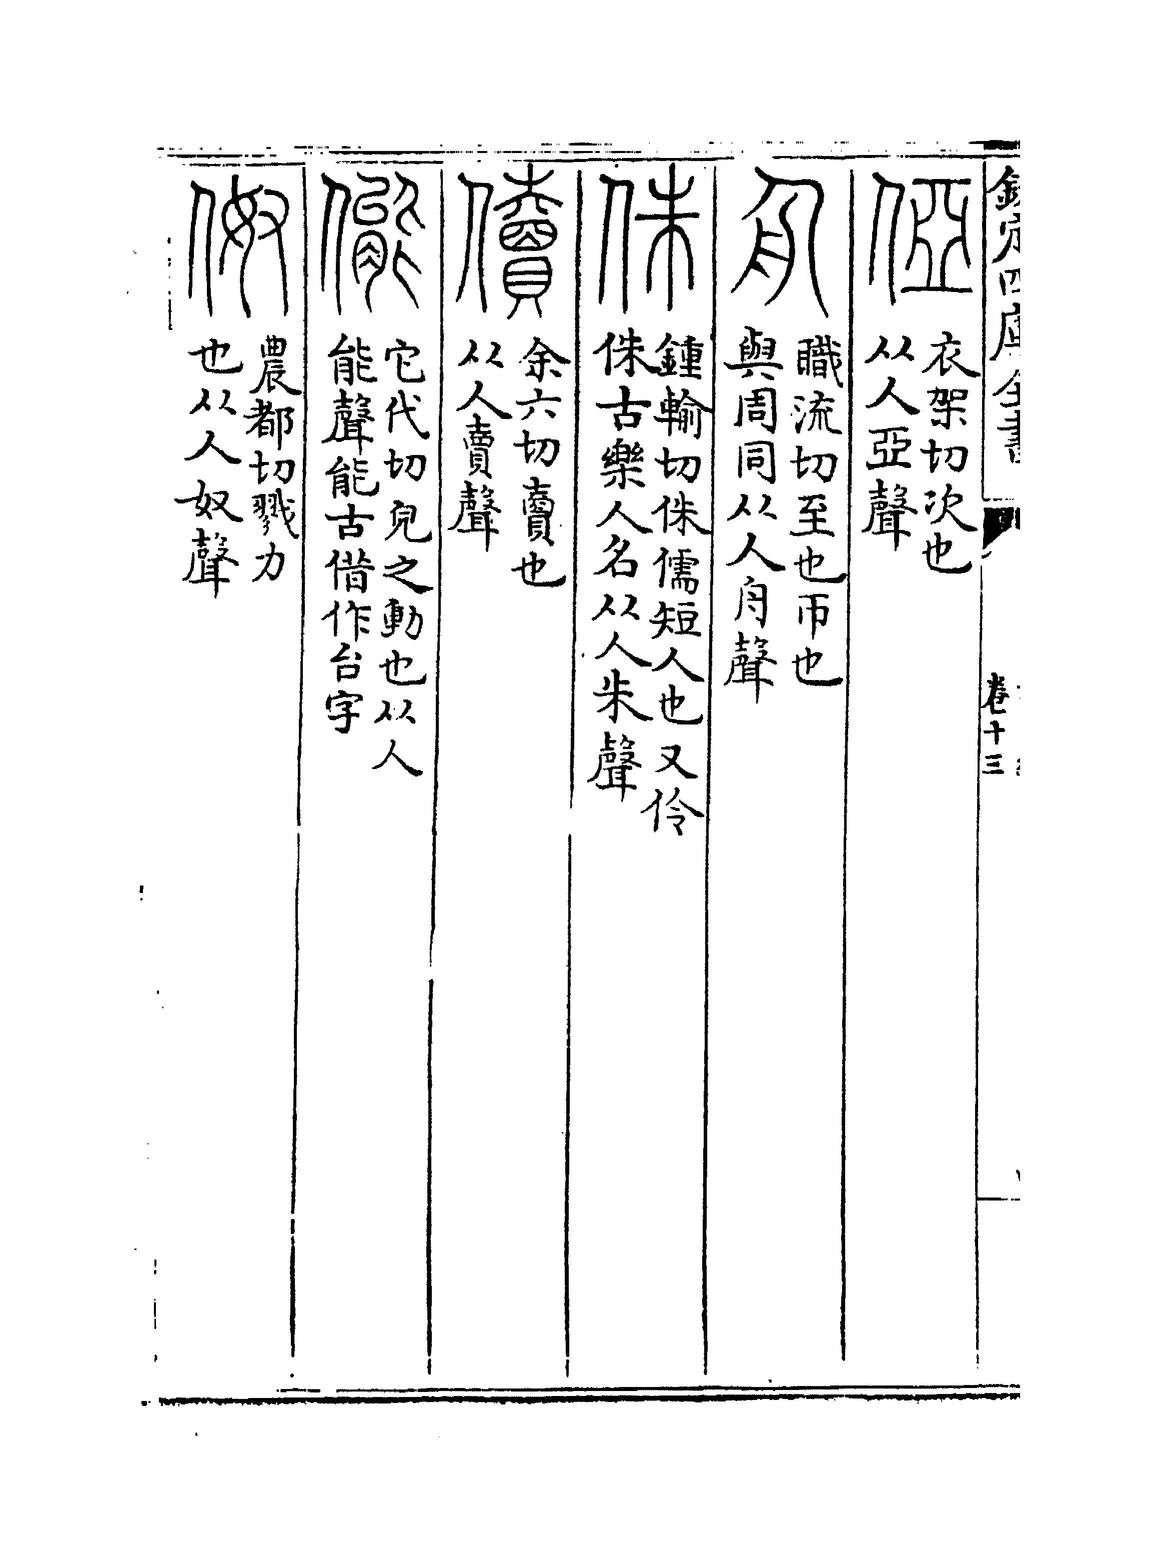 欽定四庫全書
卷十三
俹
衣架切次也
从人亞聲
侜
職流切至也帀也
與周同从人舟聲
侏
鍾輸切侏儒短人也又伶
侏古樂人名从人朱聲
儥
余六切賣也
从人賣聲
儱
它代切皃之動也从人
能聲能古借作台字
伮
農都切戮力
也从人奴聲